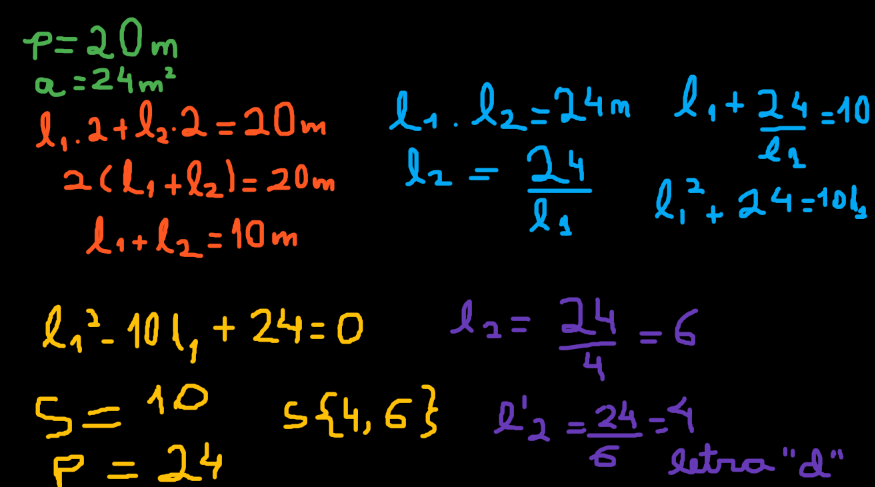 P=20m
a=24m²
l₁.2+l₂.2=20m
2(l₁+l₂)=20m
l₁+l₂=10m
l₁.l₂=24m
l₂=24/l₁
l₁+24/l₁=10
l₁²+24=10l₁
l₁²-10l₁+24=0
S=10
P=24
S{4,6}
l₂=24/4=6
l'₂=24/6=4
letra "d"